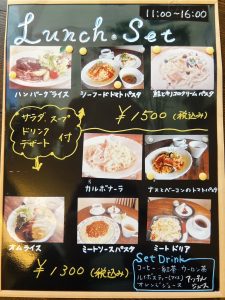 11:00〜16:00
Lunch Set
ハンバーグライス
シーフードトマトパスタ
鮭ときのこのクリームパスタ
サラダ、スープ
ドリンク
デザート 付
¥1500(税込み)
カルボナーラ
ナスとベーコンのトマトパスタ
オムライス
ミートソースパスタ
ミートドリア
¥1300(税込み)
Set Drink
コーヒー 紅茶 ウーロン茶
ルイボスティー(アイス) アップル
オレンジジュース ジュース